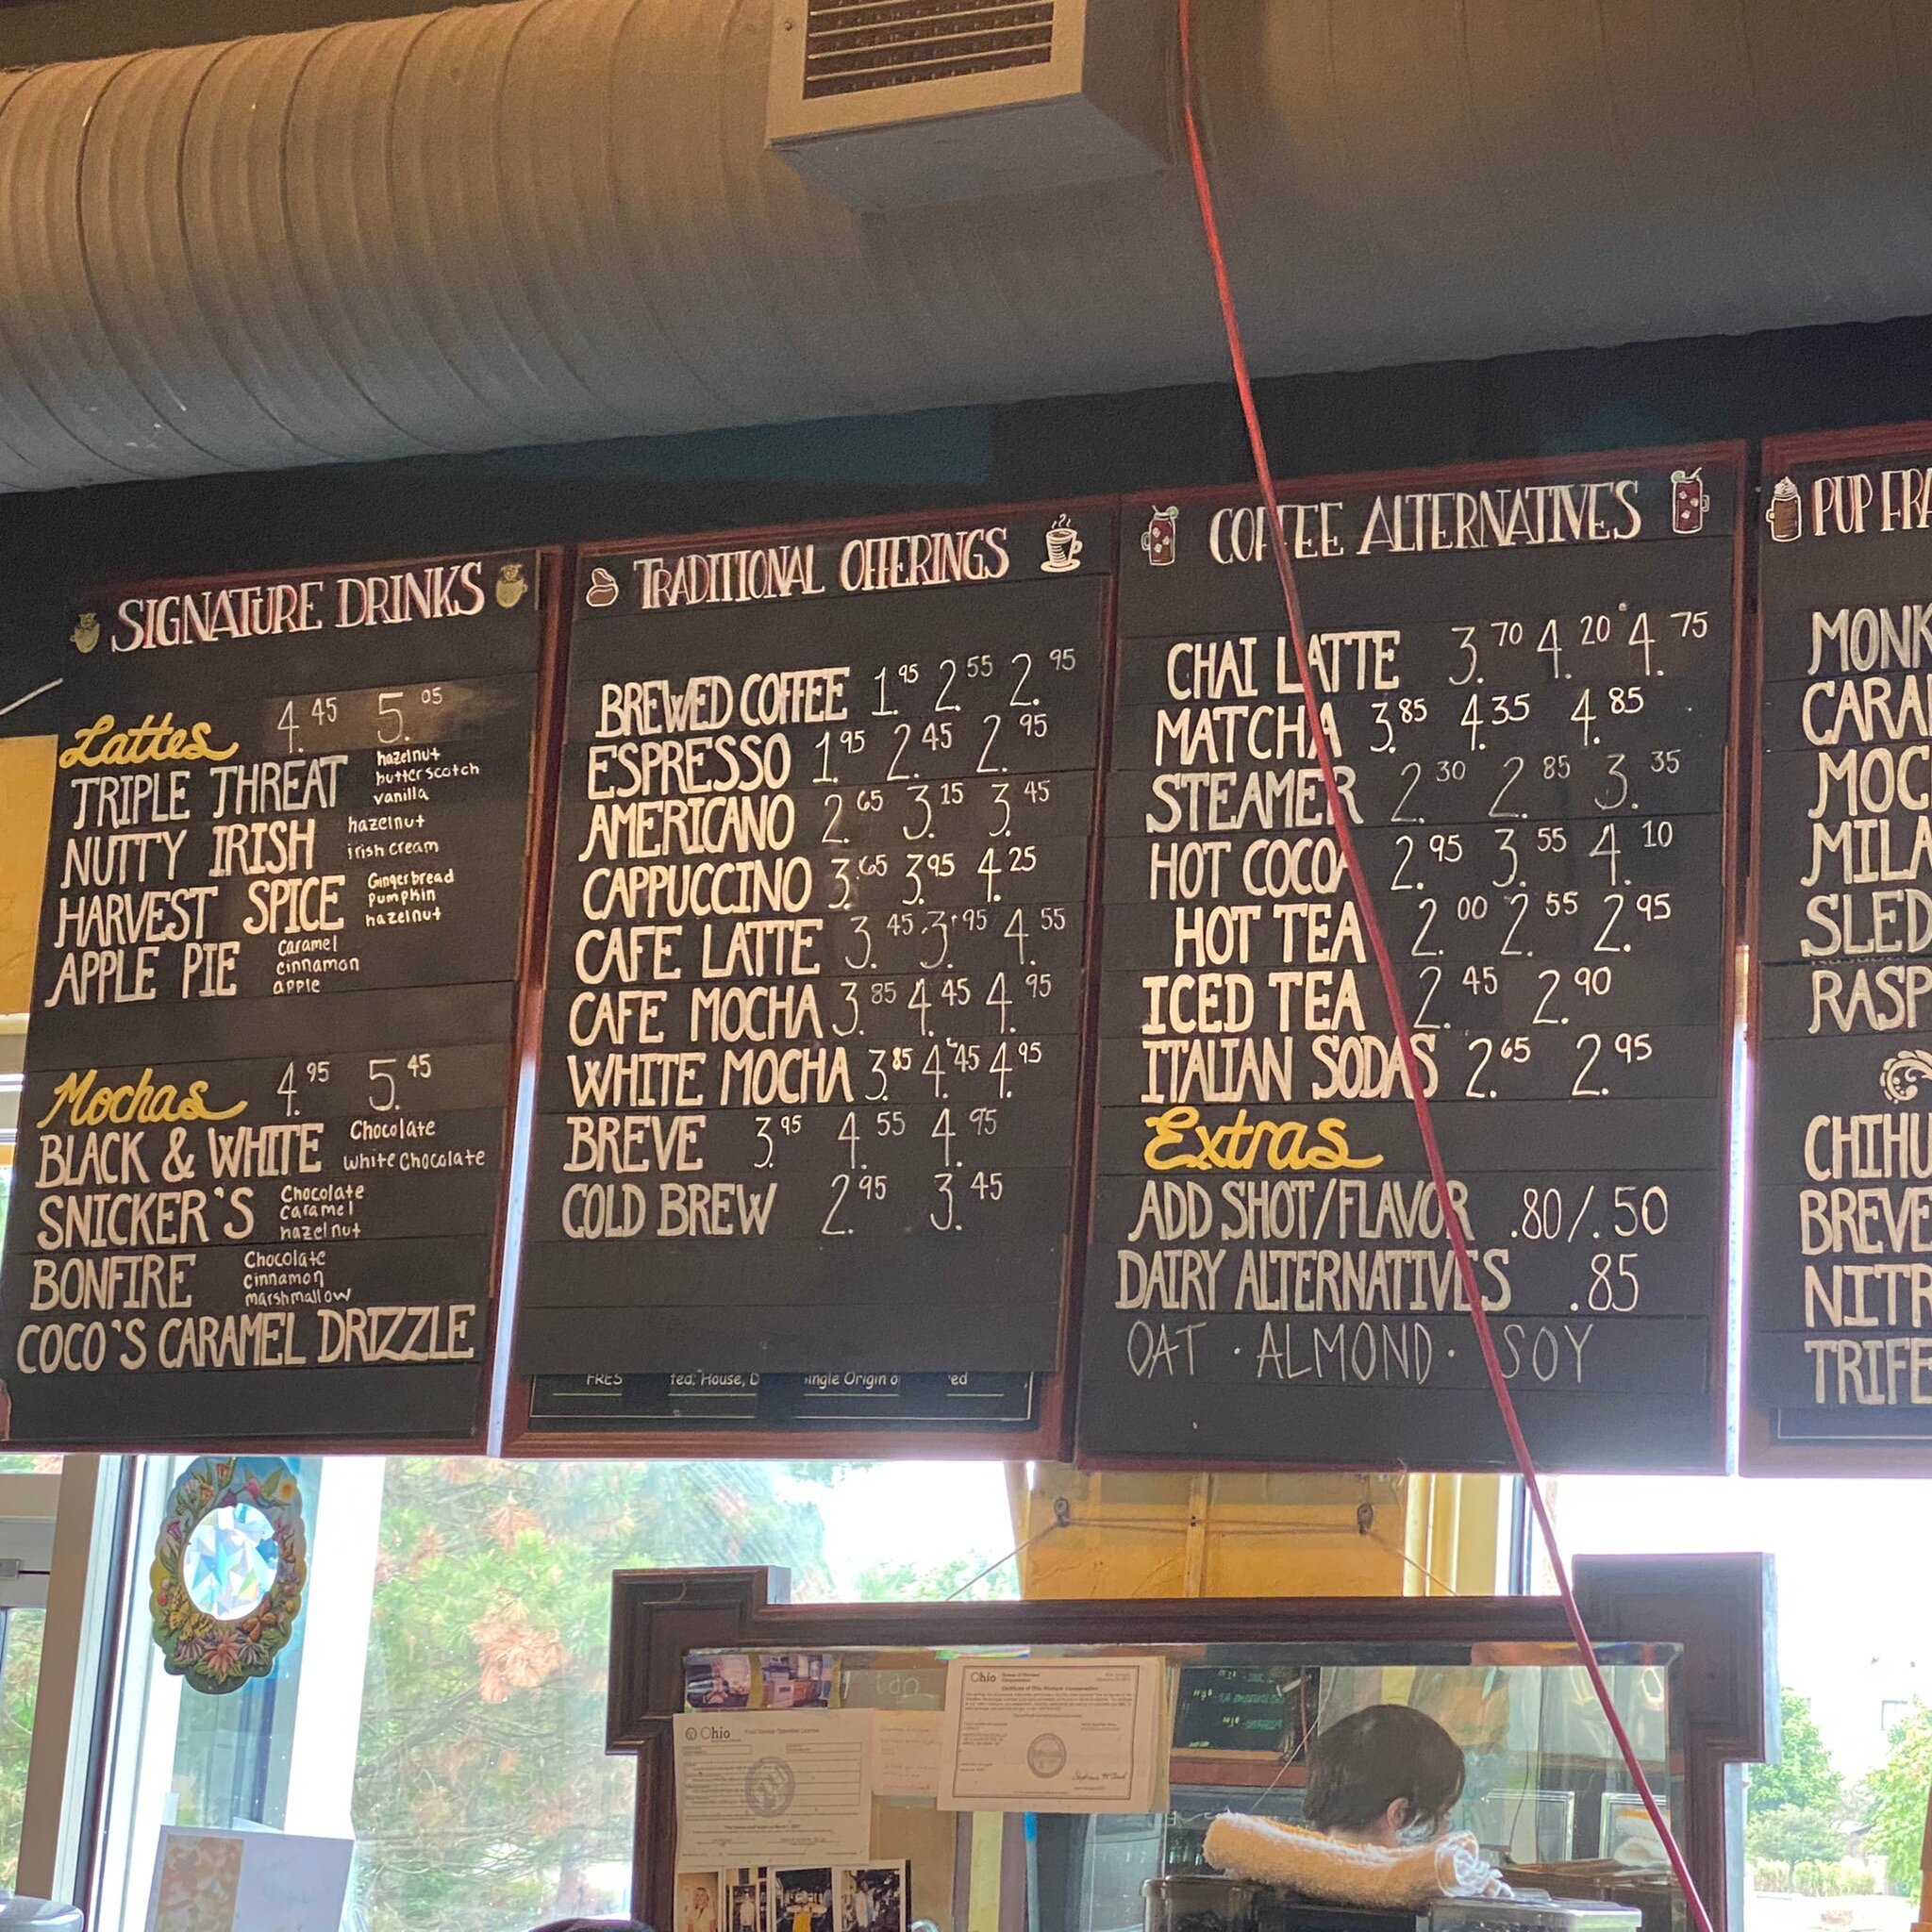 SIGNATURE DRINKS
Lattes 4.45 5.05
TRIPLE THREAT hazelnut
butterscotch
vanilla
NUTTY IRISH hazelnut
irish cream
HARVEST SPICE Gingerbread
pumpkin
hazelnut
APPLE PIE caramel
cinnamon
apple
Mochas 4.95 5.45
BLACK & WHITE Chocolate
white Chocolate
SNICKER'S Chocolate
caramel
hazelnut
BONFIRE Chocolate
cinnamon
marshmallow
COCO'S CARAMEL DRIZZLE
TRADITIONAL OFFERINGS
BREWED COFFEE 1.95 2.55 2.95
ESPRESSO 1.95 2.45 2.95
AMERICANO 2.65 3.15 3.45
CAPPUCCINO 3.65 3.95 4.25
CAFE LATTE 3.45 3.95 4.55
CAFE MOCHA 3.85 4.45 4.95
WHITE MOCHA 3.85 4.45 4.95
BREVE 3.95 4.55 4.95
COLD BREW 2.95 3.45
FRES ted; House, D ingle Origin o ed
COFFEE ALTERNATIVES
CHAI LATTE 3.70 4.20 4.75
MATCHA 3.85 4.35 4.85
STEAMER 2.30 2.85 3.35
HOT COCOA 2.95 3.55 4.10
HOT TEA 2.00 2.55 2.95
ICED TEA 2.45 2.90
ITALIAN SODAS 2.65 2.95
Extras
ADD SHOT/FLAVOR .80/.50
DAIRY ALTERNATIVES .85
OAT · ALMOND · SOY
PUP FRA
MONK
CARA
MOC
MILA
SLED
RASP
CHIHU
BREVE
NITR
TRIFE
Ohio
Ohio